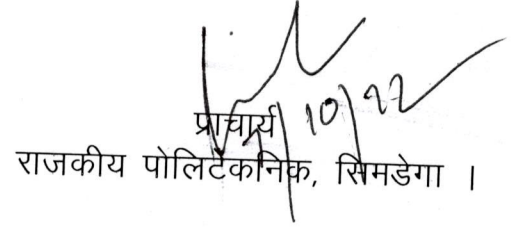 10/22
प्राचार्य
राजकीय पोलिटेकनिक, सिमडेगा ।